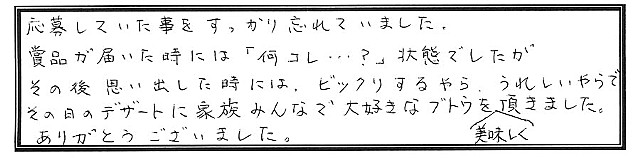 応募していた事をすっかり忘れていました。
賞品が届いた時には「何コレ…?」状態でしたが
その後思い出した時には、ビックリするやら、うれしいやらで
その日のデザートに家族みんなで大好きなブドウを美味しく頂きました。
ありがとうございました。